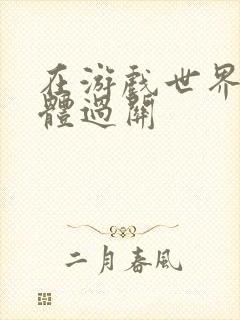 在游戏世界
體過關
二月春風